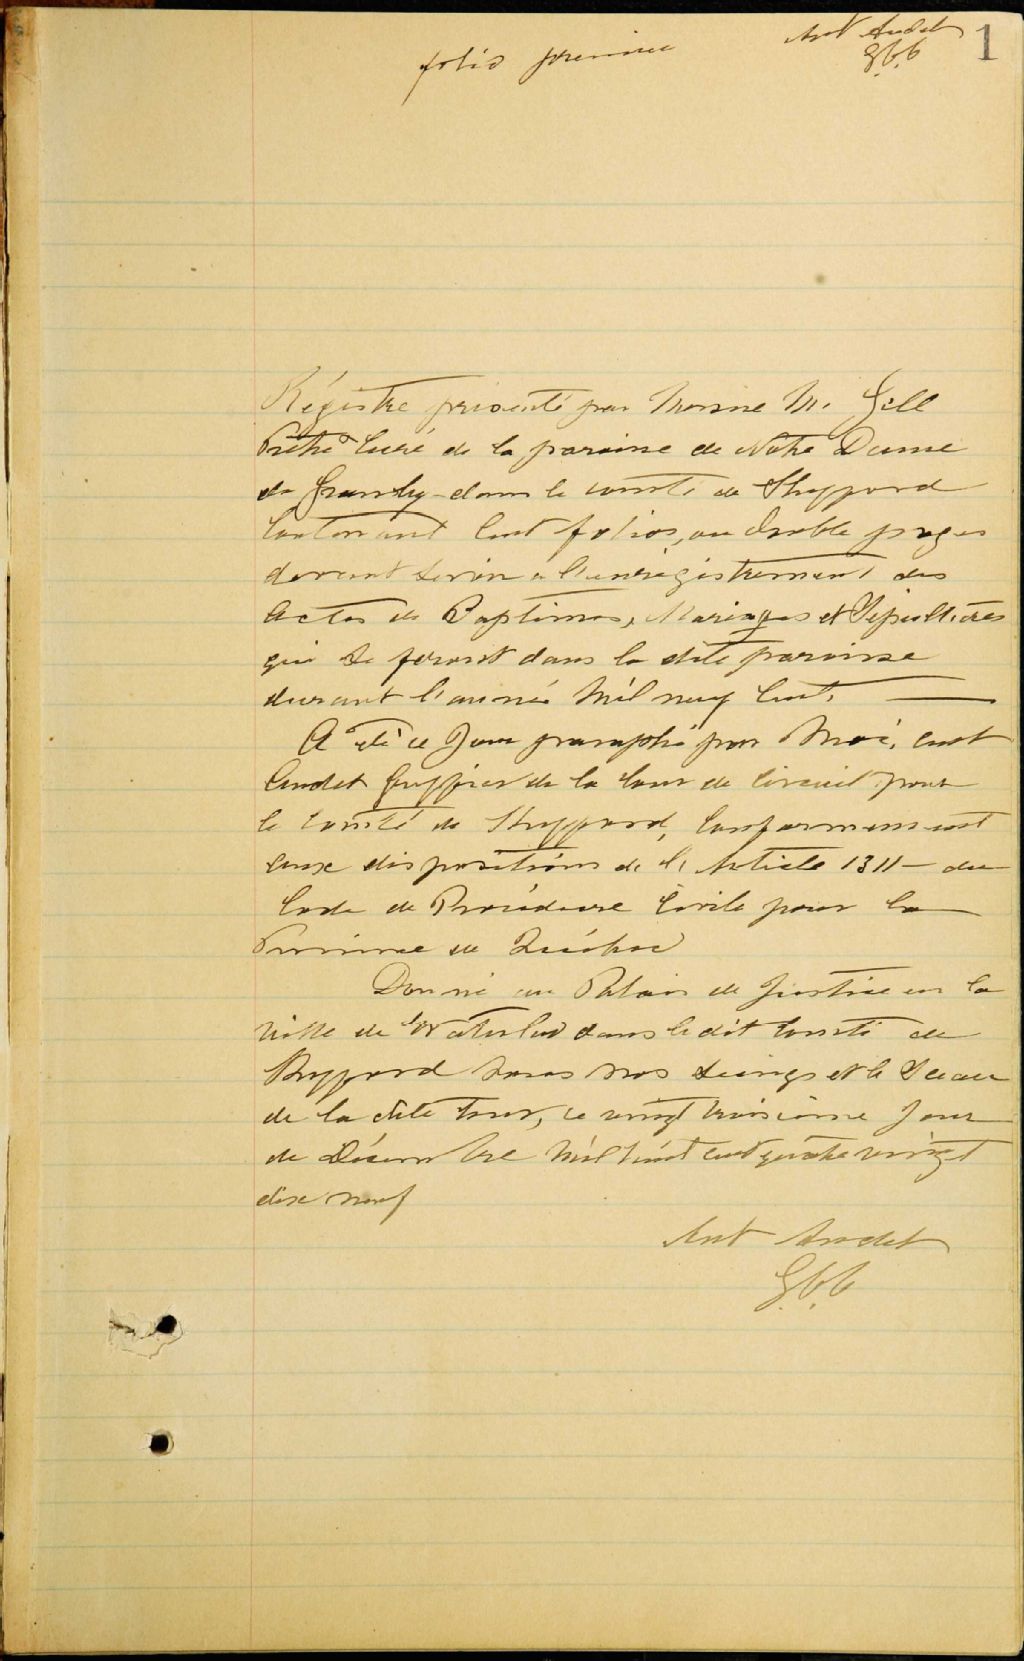 folio premier
Ant Audet
G.C.C
1
Régistre présenté par Messire M. Gill
Prêtre Curé de la paroisse de Notre Dame
de Granby dans le comté de Shefford
Contenant Cent folios, ou double pages
devant servir à l'enrégistrement des
Actes de Baptêmes, Mariages et Sépultures
qui se feront dans la dite paroisse
durant l'année Mil neuf Cent.
A été ce Jour paraphé par Moi, Ant
Audet Greffier de la Cour de Circuit pour
le Comté de Shefford, Conformément
aux dispositions de l'Article 1311 du
Code de Procédure Civile pour la
Province de Québec
Donné au Palais de Justice en la
Ville de Waterloo dans le dit Comté de
Shefford sous nos seings et le Sceau
de la dite Cour, ce vingt troisième Jour
de Décembre Mil huit cent quatre vingt
dix neuf
Ant Audet
G.C.C